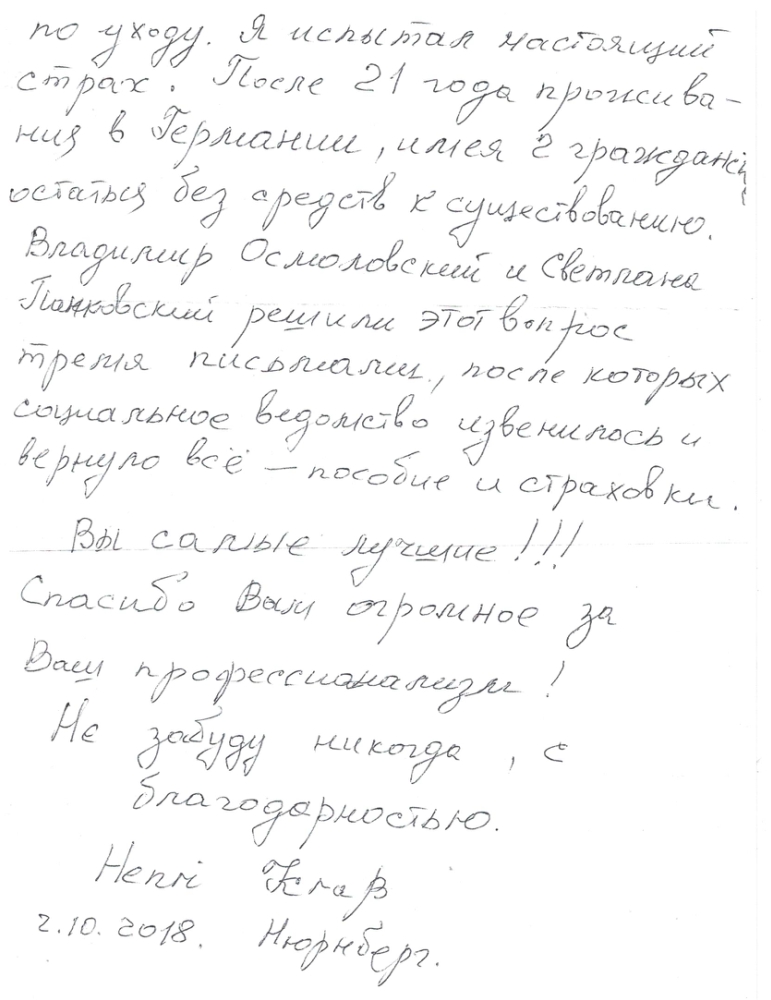 по уходу. Я испытал настоящий
страх. После 21 года прожива-
ния в Германии, имея 2 гражданс
остаться без средств к существованию.
Владимир Осмоловский и Светлана
Панковский решили этот вопрос
тремя письмами, после которых
социальное ведомство извенилось и
вернуло всё — пособие и страховки.
Вы самые лучшие!!!
Спасибо Вам огромное за
Ваш профессионализм!
Не забуду никогда, с
благодарностью.
Henri
2.10.2018. Нюрнберг.